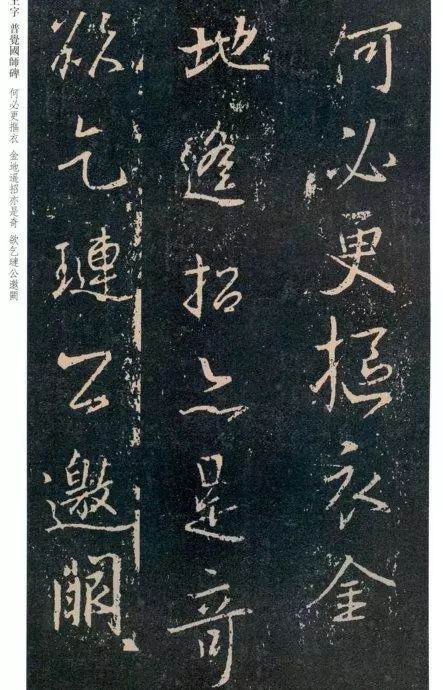 何必更摳衣金
地遙招亦是奇
欲乞璉公邀
王字 普覺國師碑 何必更摳衣 金地遙招亦是奇 欲乞璉公邀